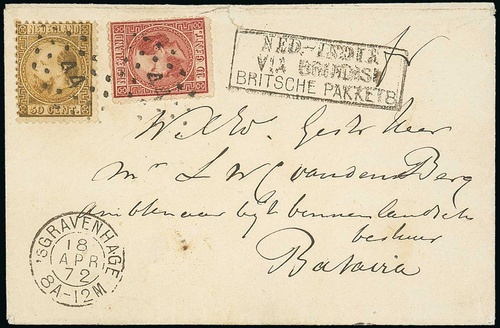 NEDERLAND
50 CENT.
NEDERLAND
10 CENT.
44
NED-INDIE
VIA BRINDISI
BRITSCHE PAKKETB
Heer
Mr L W C van den Berg
ambtenaar bij't binnenlandsch
bestuur
Batavia
'SGRAVENHAGE
18
APR
72
8A-12M